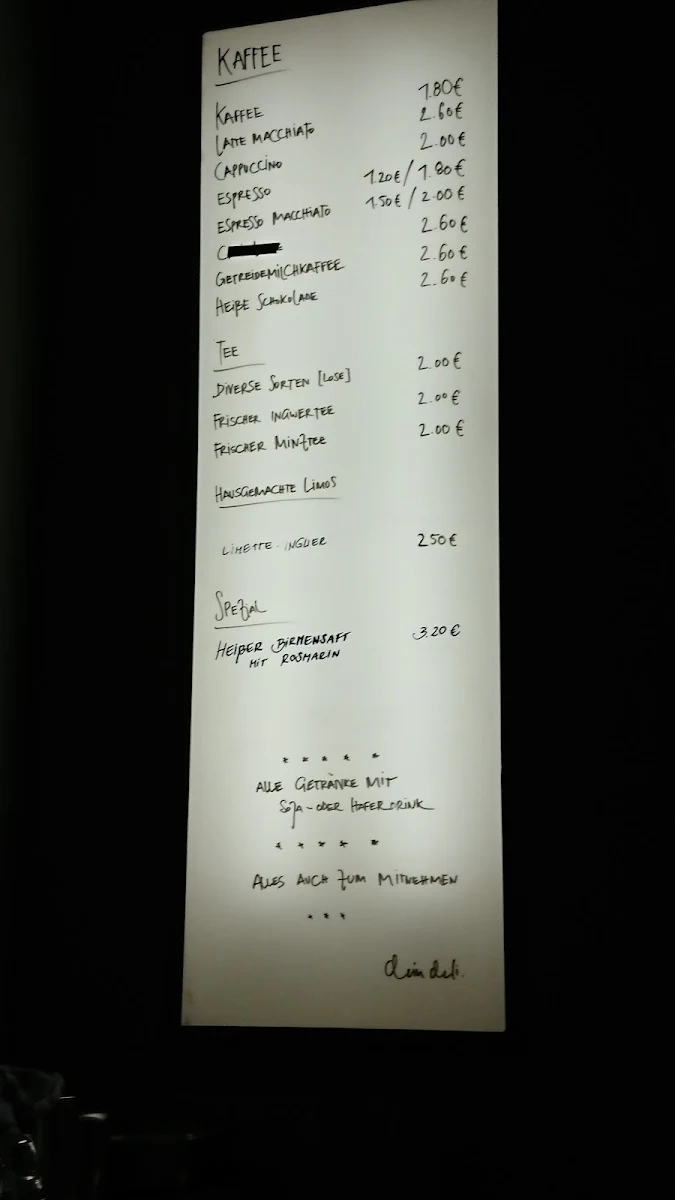 KAFFEE
KAFFEE 1.80€
LATTE MACCHIATO 2.60€
CAPPUCCINO 2.00€
ESPRESSO 1.20€/1.80€
ESPRESSO MACCHIATO 1.50€/2.00€
2.60€
GETREIDEMILCHKAFFEE 2.60€
HEIßE SCHOKOLADE 2.60€
TEE
DIVERSE SORTEN [LOSE] 2.00€
FRISCHER INGWERTEE 2.00€
FRISCHER MINZTEE 2.00€
HAUSGEMACHTE LIMOS
LIMETTE-INGWER 2.50€
SPEZIAL
HEIßER BIRNENSAFT 3.20€
MIT ROSMARIN
* * * * *
ALLE GETRÄNKE MIT
SOJA-ODER HAFERDRINK
* * * * *
ALLES AUCH ZUM MITNEHMEN
* * *